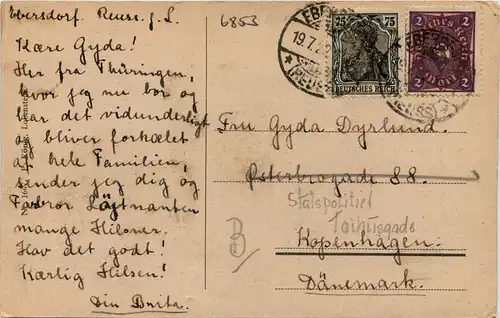 Ebersdorf. Reuss. j. L.
Kære Gyda!
Her fra Thüringen,
hvor jeg nu bor og
har det vidunderligt
og bliver forkælet
af hele Familien,
sender jeg dig og
Farbror Löjtnanten
mange Hilsner.
Hav det godt!
Kærlig Hilsen!
Din Brita.
6853
EBERSD
19.7.22
(REUSS)
75 75
DEUTSCHES REICH
2 2
Deutsches Reich
2 2
Fru Gyda Dyrlund.
Østerbrogade 88.
Statspolitiet
Kopenhagen.
Dänemark.
B
König, Lobenstein